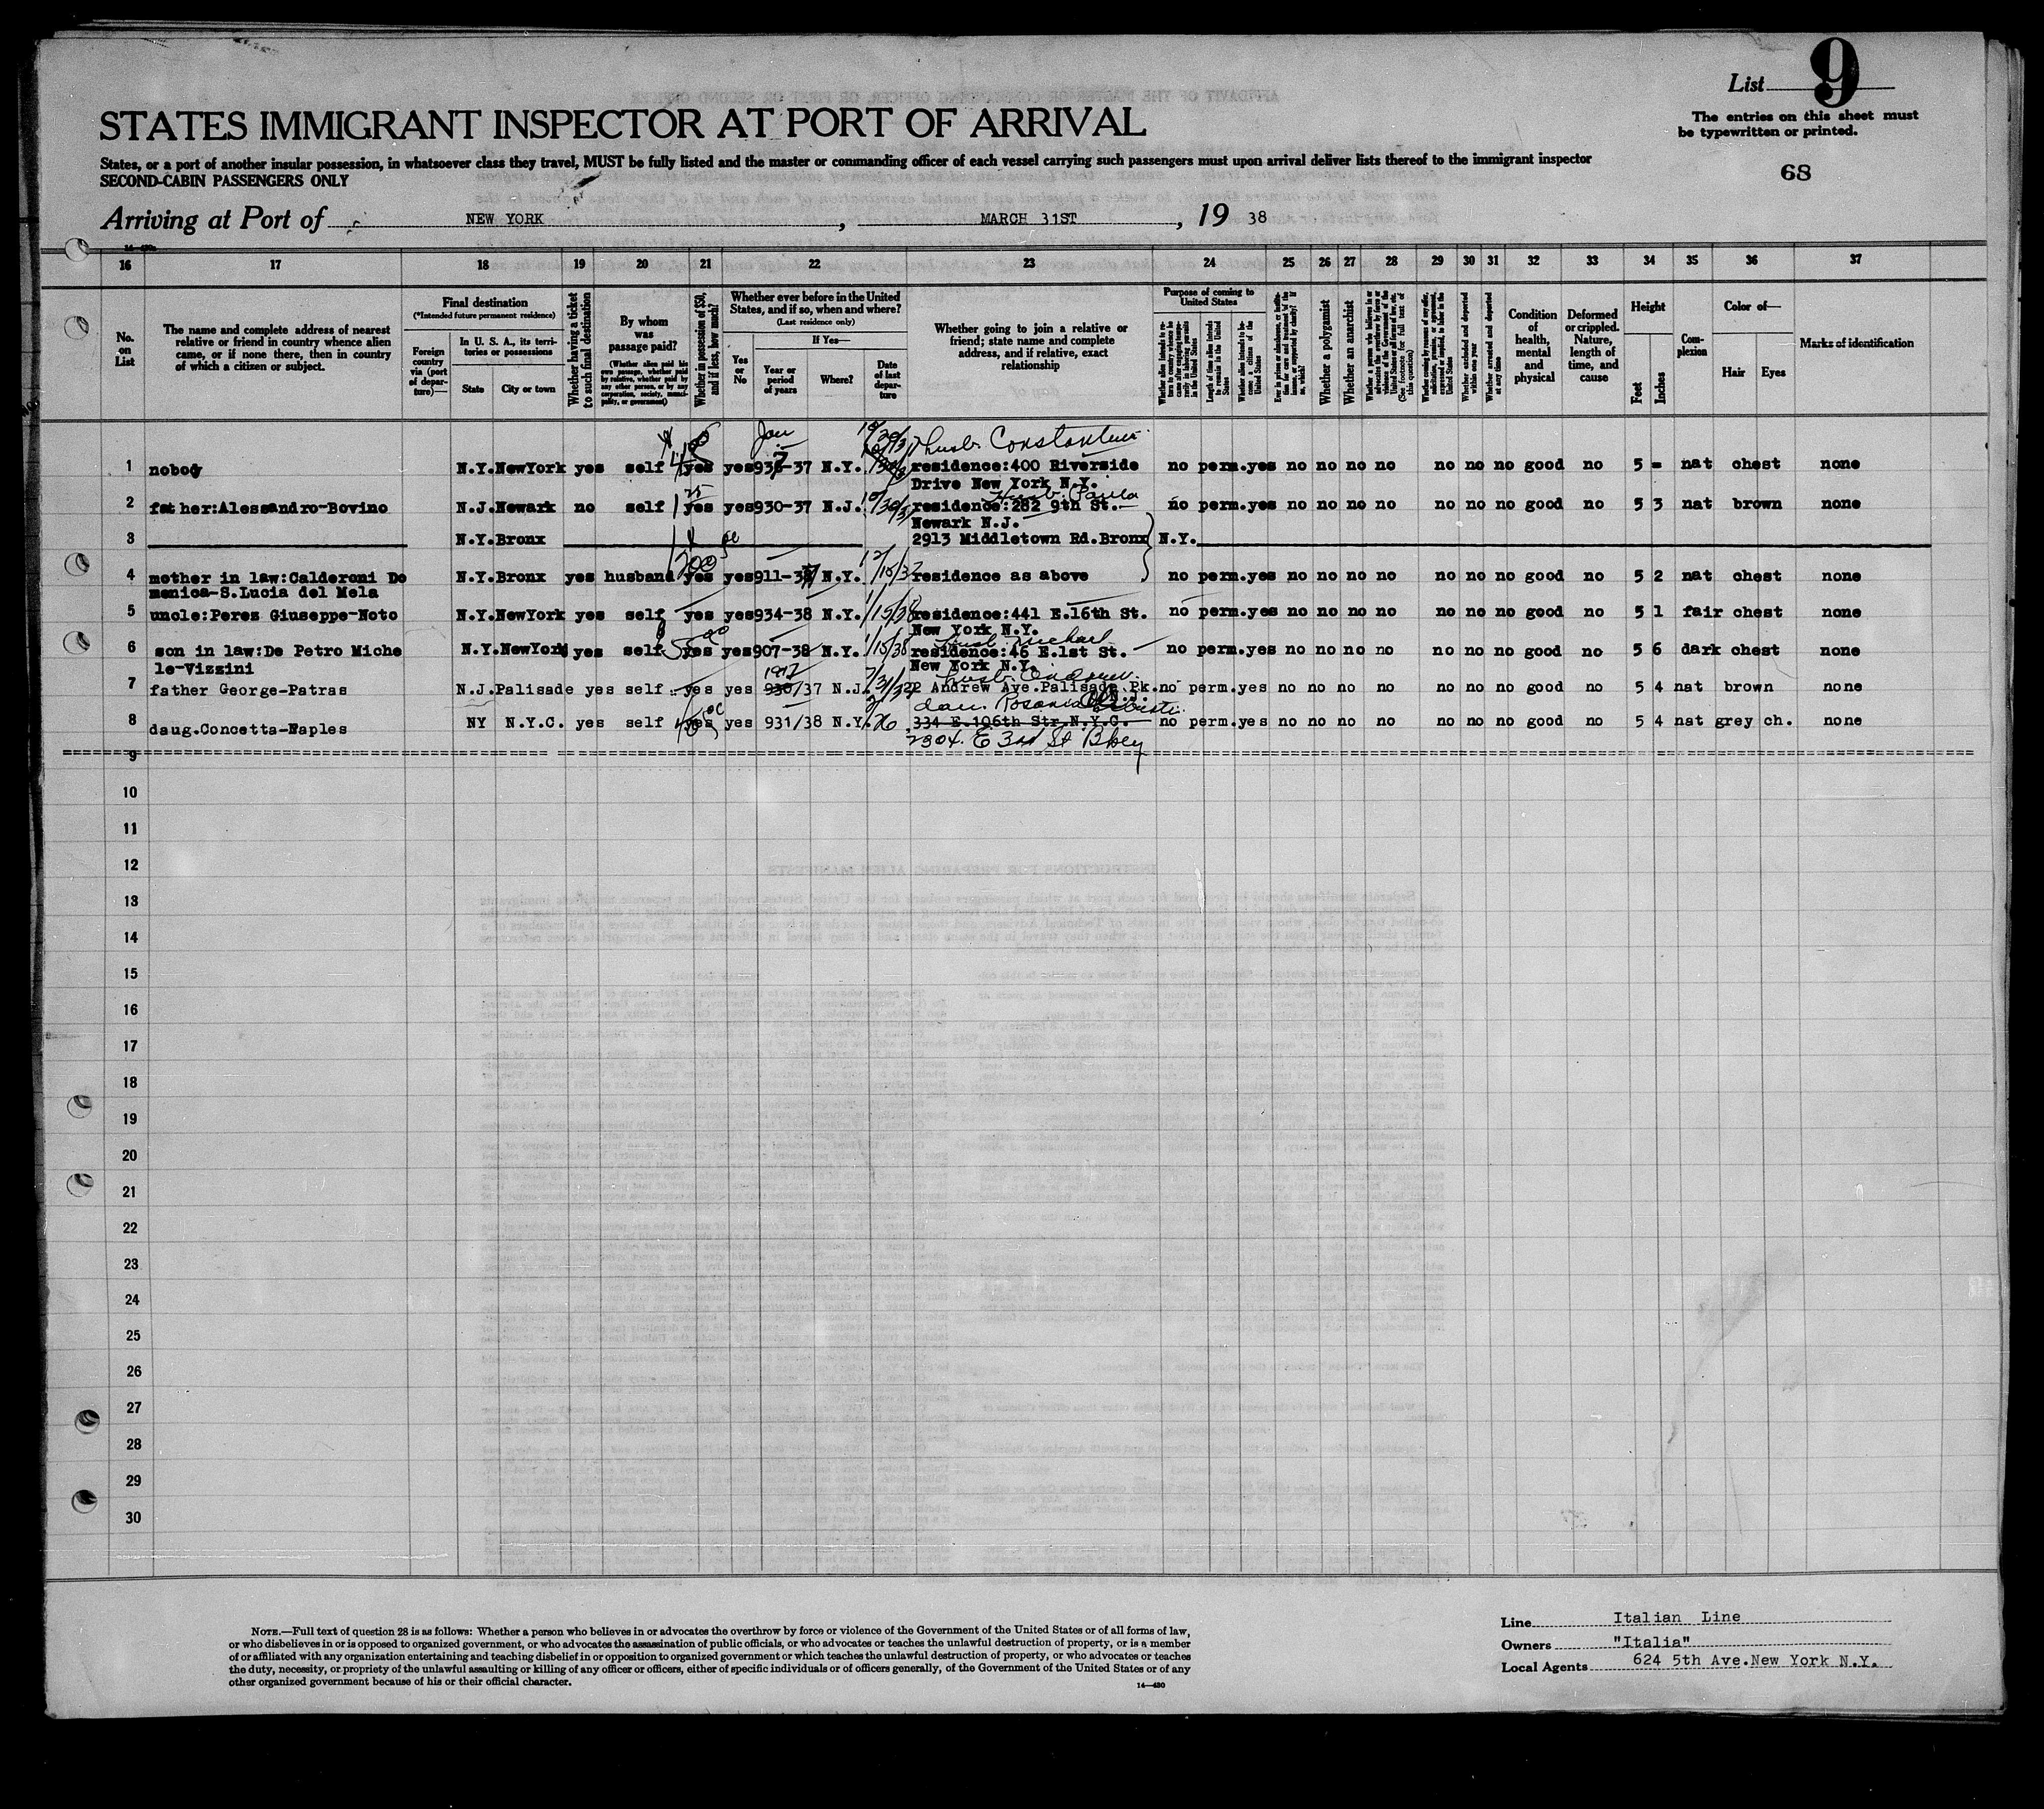 List 9
The entries on this sheet must
be typewritten or printed.
68
STATES IMMIGRANT INSPECTOR AT PORT OF ARRIVAL
States, or a port of another insular possession, in whatsoever class they travel, MUST be fully listed and the master or commanding officer of each vessel carrying such passengers must upon arrival deliver lists thereof to the immigrant inspector
SECOND-CABIN PASSENGERS ONLY
Arriving at Port of NEW YORK, MARCH 31ST, 19 38
16 17 18 19 20 21 22 23 24 25 26 27 28 29 30 31 32 33 34 35 36 37
No. on List
The name and complete address of nearest relative or friend in country whence alien came, or if none there, then in country of which a citizen or subject.
Final destination
(*Intended future permanent residence)
Foreign country via (port of departure)—
In U. S. A., its territories or possessions
State City or town
Whether having a ticket to such final destination
By whom was passage paid?
(Whether alien paid his own passage, whether paid by relative, whether paid by any other person, or by any corporation, society, municipality, or government)
Whether in possession of $50, and if less, how much?
Whether ever before in the United States, and if so, when and where?
(Last residence only)
Yes or No
If Yes—
Year or period of years
Where?
Date of last departure
Whether going to join a relative or friend; state name and complete address, and if relative, exact relationship
Purpose of coming to United States
Length of time alien intends to remain in the United States
Whether alien intends to become a citizen of the United States
Whether a polygamist
Whether an anarchist
Whether excluded and deported within one year
Whether arrested and deported at any time
Condition of health, mental and physical
Deformed or crippled. Nature, length of time, and cause
Height
Feet Inches
Complexion
Color of—
Hair Eyes
Marks of identification
Jan
husb. Constantin
1 nobody N.Y. NewYork yes self yes yes 936-37 N.Y. residence:400 Riverside no perm. yes no no no no no no no good no 5 = nat chest none
Drive New York N.Y.
husb. Paula
2 father:Alessandro-Bovino N.J. Newark no self yes yes 930-37 N.J. residence:282 9th St. no perm. yes no no no no no no no good no 5 3 nat brown none
Newark N.J.
3 N.Y. Bronx 2913 Middletown Rd. Bronx N.Y.
4 mother in law:Calderoni Do N.Y. Bronx yes husband 200 yes yes 911-37 N.Y. residence as above no perm. yes no no no no no no no good no 5 2 nat chest none
menica-S.Lucia del Mela
5 uncle:Perez Giuseppe-Noto N.Y. NewYork yes self yes yes 934-38 N.Y. 1/15/38 residence:441 E.16th St. no perm. yes no no no no no no no good no 5 1 fair chest none
New York N.Y.
husb. Michael
6 son in law:De Petro Miche N.Y. NewYork yes self yes yes 907-38 N.Y. 1/15/38 residence:46 E.1st St. no perm. yes no no no no no no no good no 5 6 dark chest none
le-Vizzini New York N.Y.
husb. Andrew
7 father George-Patras N.J. Palisade yes self yes yes 930/37 N.J. 7/31/37 22 Andrew Ave. Palisade Pk. no perm. yes no no no no no no no good no 5 4 nat brown none
N.J.
8 daug.Concetta-Naples NY N.Y.C. yes self yes yes 931/38 N.Y. 334 E.106th Str. N.Y.C. no perm. yes no no no no no no no good no 5 4 nat grey ch. none
2304 E 3rd St Bkly
9
10
11
12
13
14
15
16
17
18
19
20
21
22
23
24
25
26
27
28
29
30
NOTE.—Full text of question 28 is as follows: Whether a person who believes in or advocates the overthrow by force or violence of the Government of the United States or of all forms of law,
or who disbelieves in or is opposed to organized government, or who advocates the assassination of public officials, or who advocates or teaches the unlawful destruction of property, or is a member
of or affiliated with any organization entertaining and teaching disbelief in or opposition to organized government or which teaches the unlawful destruction of property, or who advocates or teaches
the duty, necessity, or propriety of the unlawful assaulting or killing of any officer or officers, either of specific individuals or of officers generally, of the Government of the United States or of any
other organized government because of his or their official character.
14—430
Line Italian Line
Owners "Italia"
Local Agents 624 5th Ave.New York N.Y.